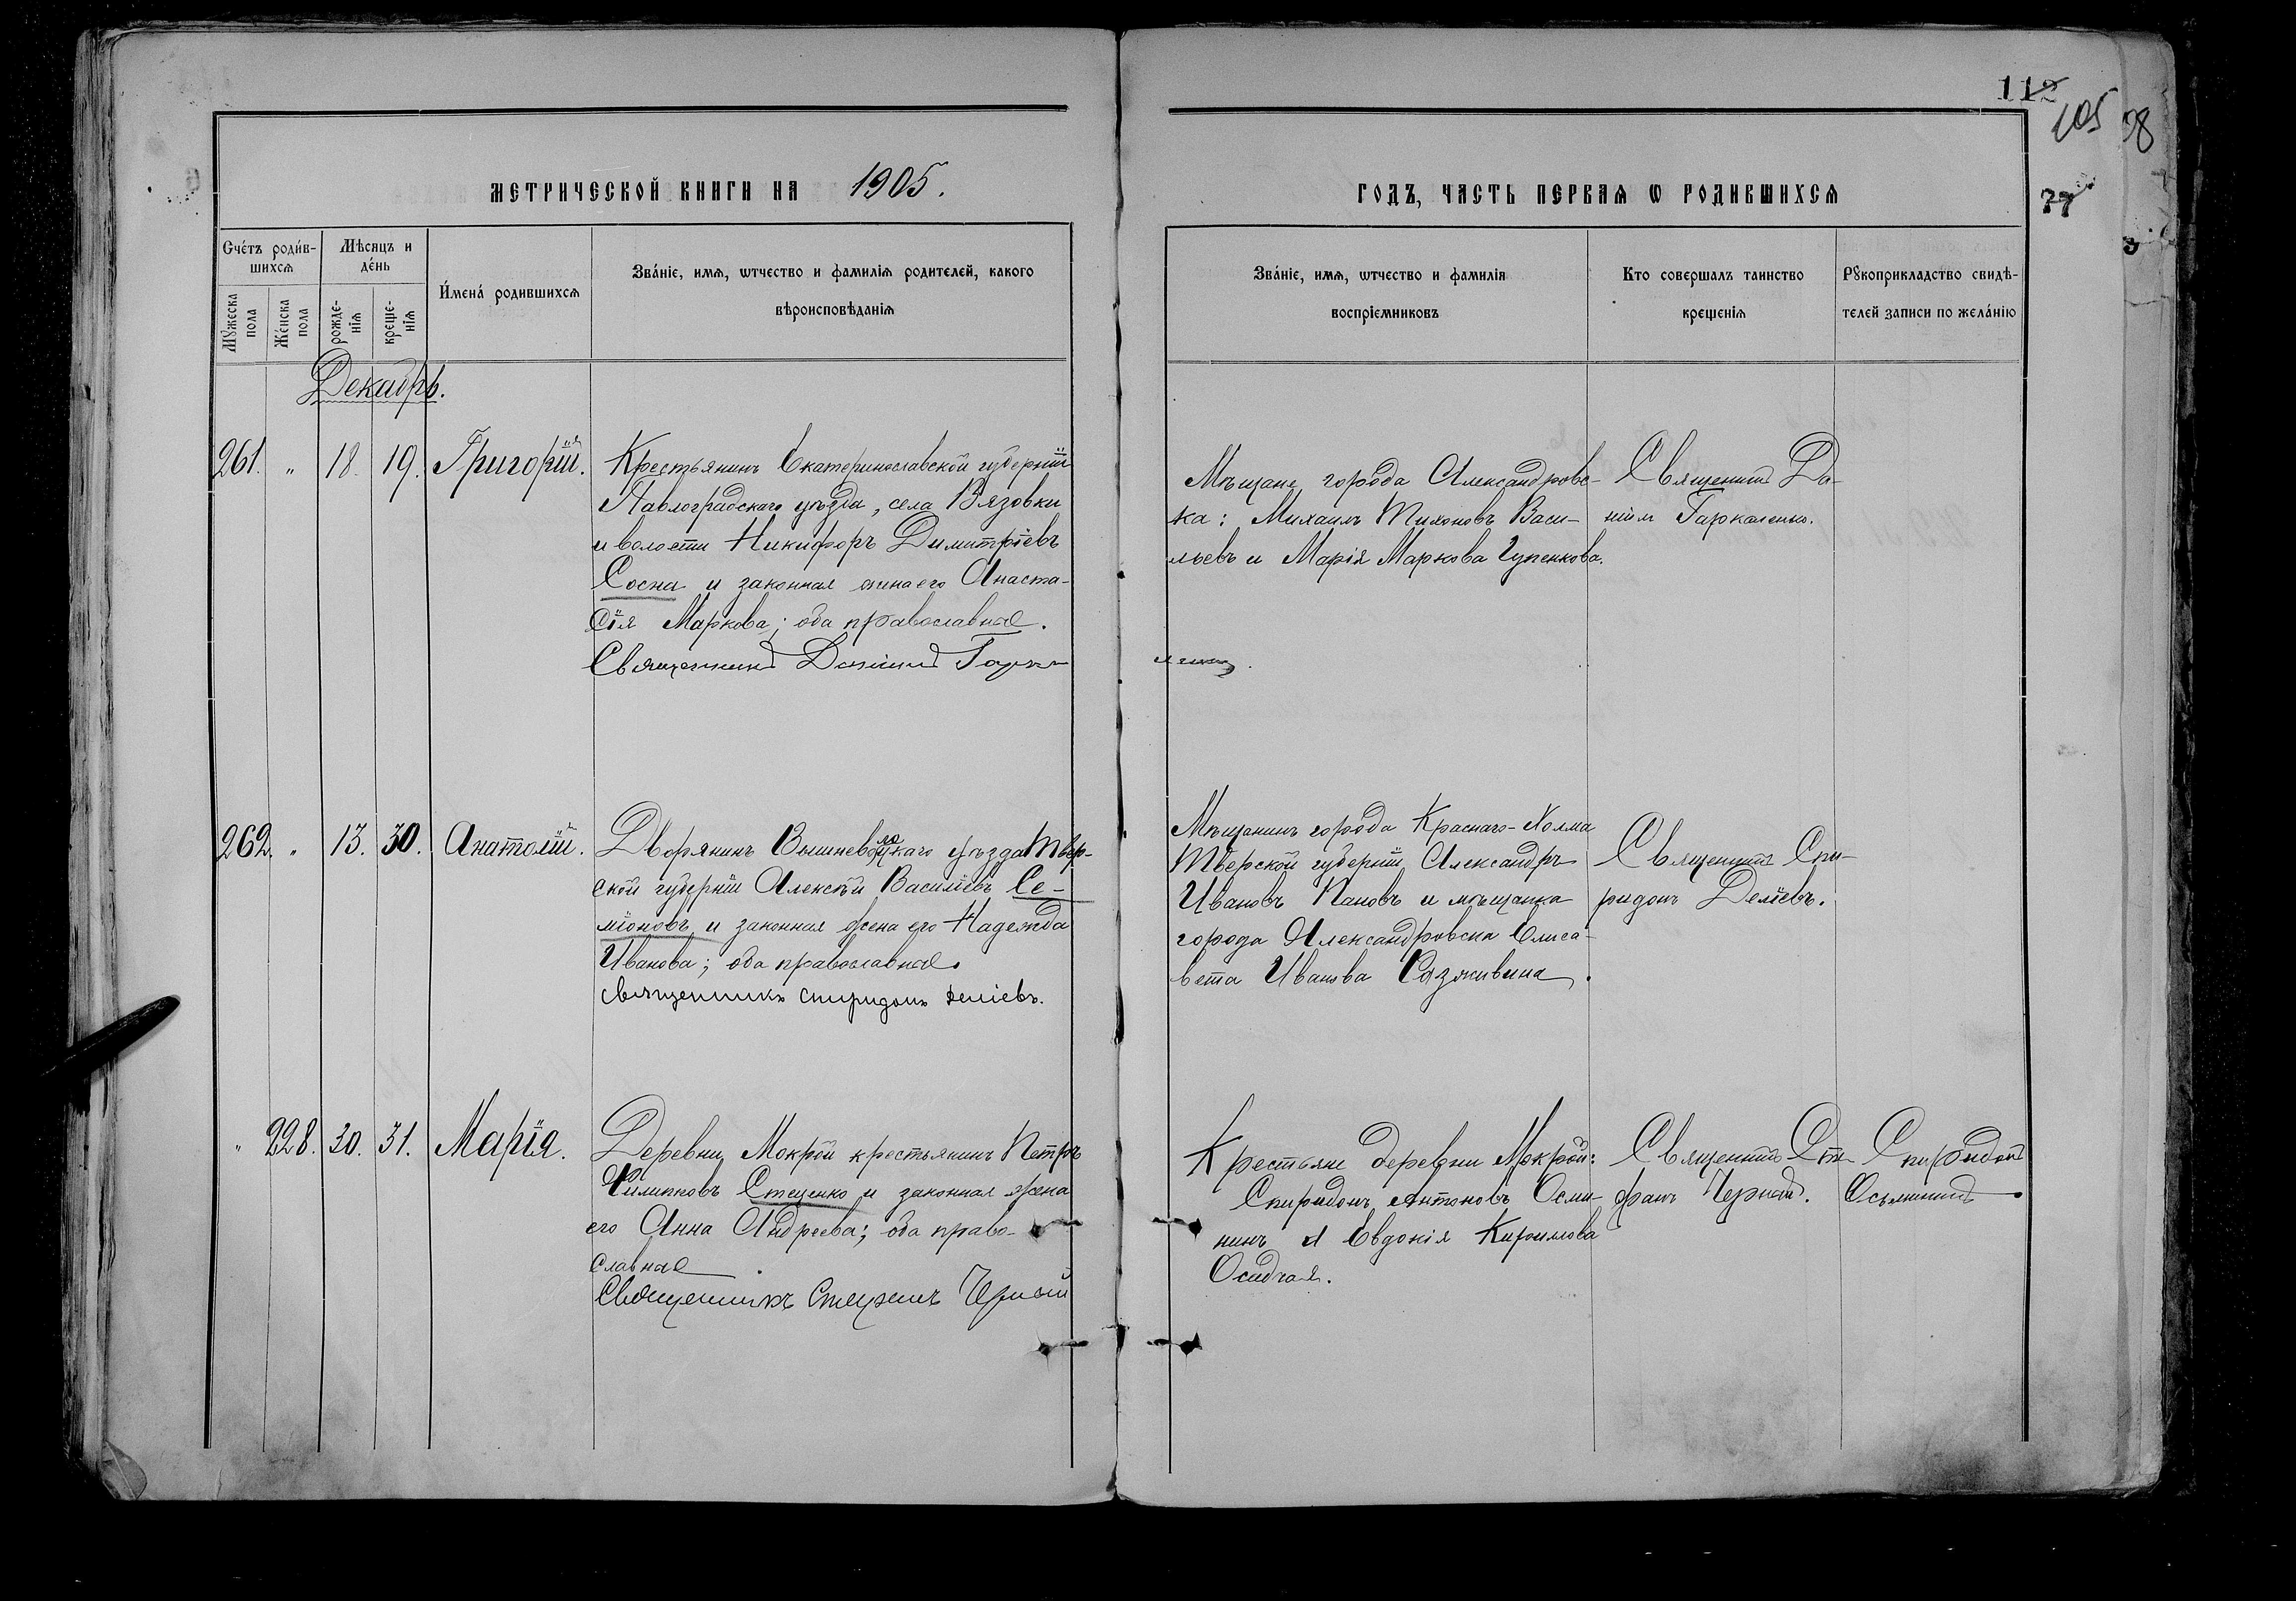 112
105 98
77
МЕТРИЧЕСКОЙ КНИГИ НА 1905.
ГОДЪ, ЧАСТЬ ПЕРВАЯ Ѡ РОДИВШИХСЯ
Счétъ роди́в-
шихся
Мѣсяцъ и
де́нь
Мꙋжеска
пола
Же́нска
пола
рожде-
нія
креще-
нія
И́мена́ родившихся
Зва́ніе, имя, ѡтчество и фамилія родителей, какого
вѣроисповѣданія
Зва́ніе, имя, ѡтчество и фамилія
воспріемниковъ
Кто совершалъ таинство
крещенія
Рꙋкоприкладство свидѣ-
телей записи по жела́нію
Декабрь.
261. " 18. 19. Григорій.
Крестьянинъ Екатеринославской губерніи
Павлоградскаго уѣзда, села Вязовки
и волости Никифоръ Димитріевъ
Сосна и законная жена его Анаста-
сія Маркова; оба православные.
Священникъ Даніилъ Гарка-
ленко.
Мѣщане города Александровс-
ка: Михаилъ Тихоновъ Васи-
льевъ и Марія Маркова Чупенкова.
Священникъ Да-
ніилъ Гаркаленко.
262. " 13. 30. Анатолій.
Дворянинъ Вышневолоцкаго уѣзда Твер-
ской губерніи Алексѣй Василіевъ Се-
міоновъ и законная жена его Надежда
Иванова; оба православные.
Священникъ Спиридонъ Деліевъ.
Мѣщанинъ города Краснаго-Холма
Тверской губерніи Александръ
Ивановъ Пановъ и мѣщанка
города Александровска Елиса-
вета Иванова Сазживина.
Священникъ Спи-
ридонъ Деліевъ.
" 228. 30. 31. Марія.
Деревни Мокрой крестьянинъ Петръ
Филипповъ Стеценко и законная жена
его Анна Андреева; оба право-
славные.
Священникъ Стефанъ Черный
Крестьяне деревни Мокрой:
Спиридонъ Антоновъ Осми-
нинъ и Евдокія Кириллова
Осидчая.
Священникъ Сте-
фанъ Черный.
Спиридонъ
Осьмининъ